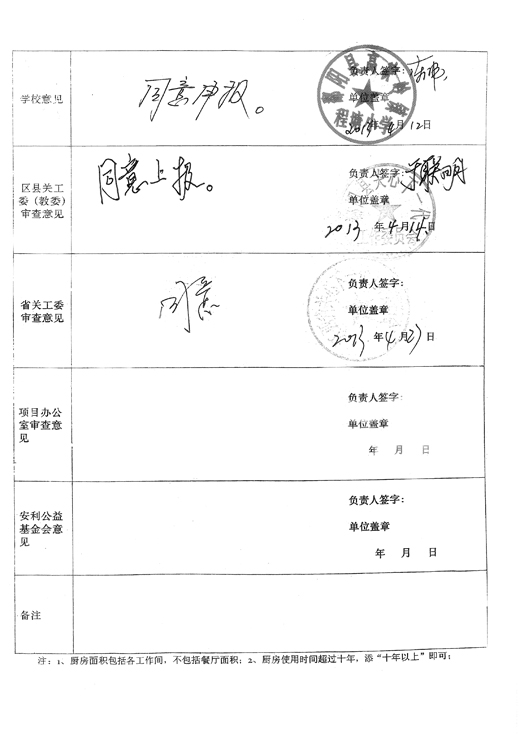 学校意见
同意申报。
负责人签字：
单位盖章
2013年4月12日
程塘小学
区县关工
委（教委）
审查意见
同意上报。
负责人签字：
单位盖章
2013 年4月14日
省关工委
审查意见
同意
负责人签字：
单位盖章
2013 年4月23日
项目办公
室审查意
见
负责人签字：
单位盖章
年 月 日
安利公益
基金会意
见
负责人签字：
单位盖章
年 月 日
备注
注：1、厨房面积包括各工作间，不包括餐厅面积；2、厨房使用时间超过十年，添“十年以上”即可；